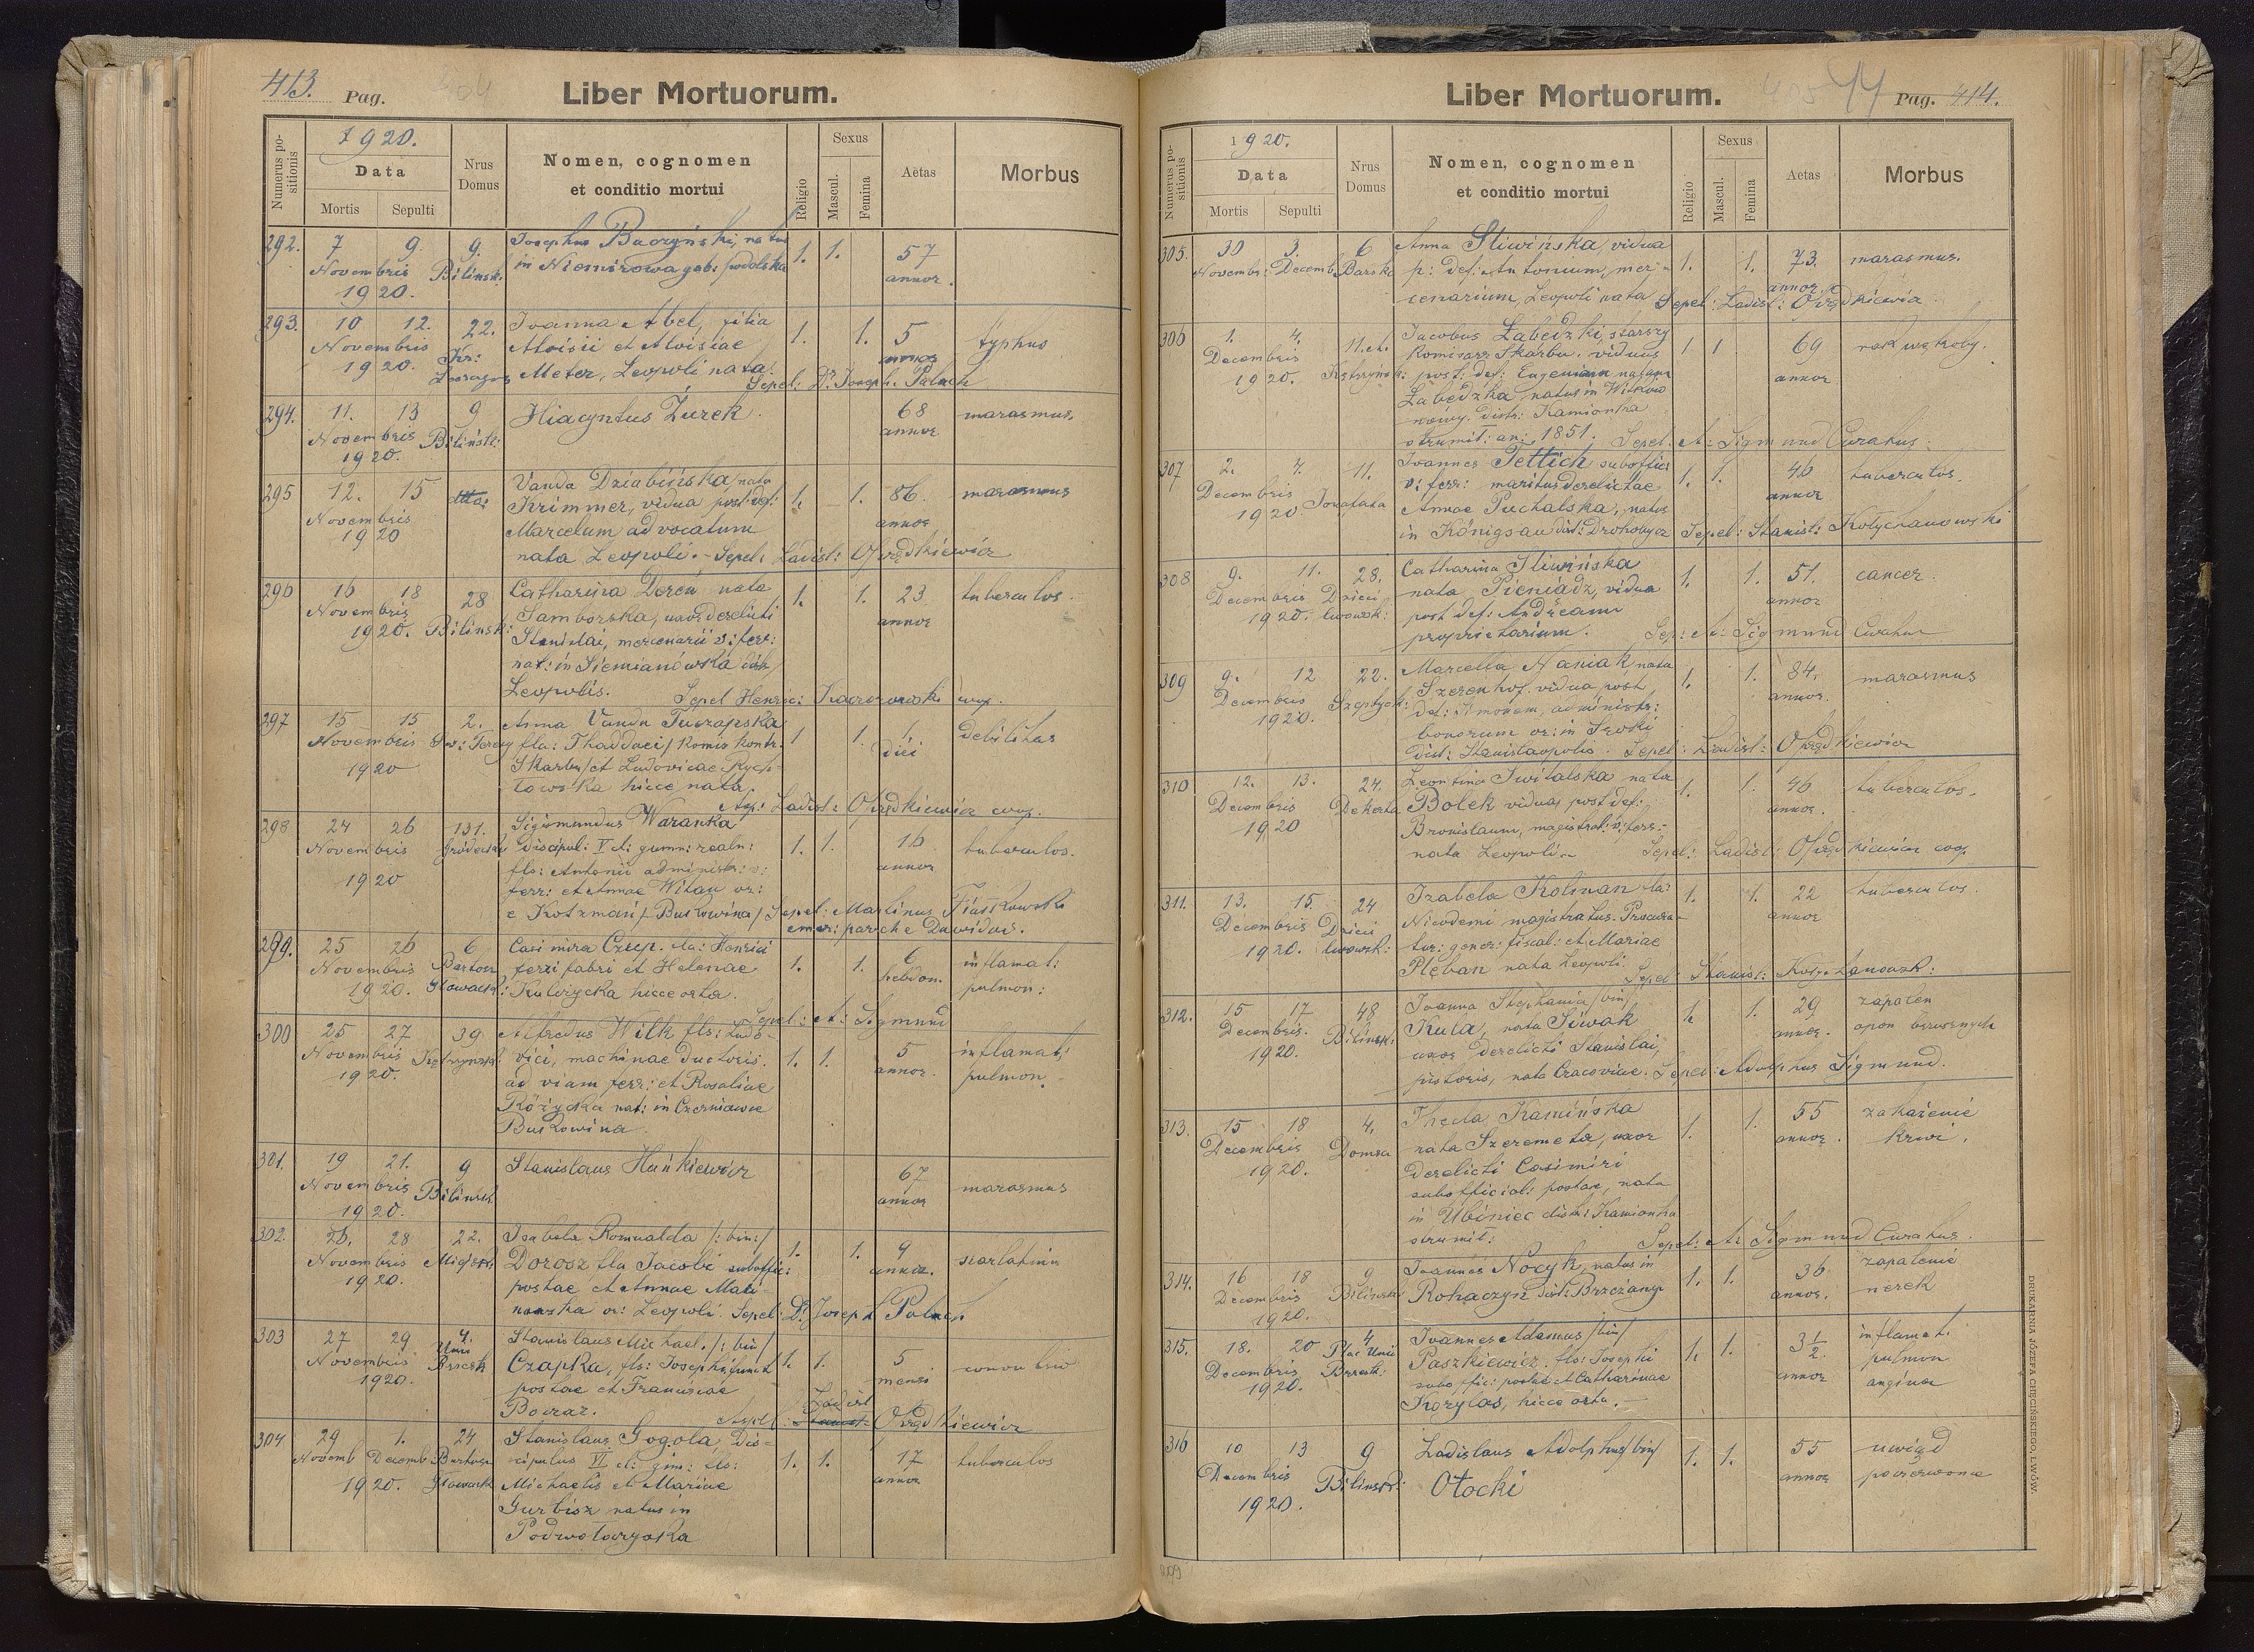 413. Pag.
Liber Mortuorum.
Numerus positionis
1920.
Data
Mortis Sepulti
Nrus Domus
Nomen, cognomen
et conditio mortui
Religio
Sexus
Mascul. Femina
Aetas
Morbus
292. 7 9. 9. Josephus Baczyński, natus 1. 1. 57
Novembris Bilińsk: in Niemirowa gub: podolska annor.
1920.
293. 10 12. 22. Joanna Abel, filia 1. 1. 5 typhus
Novembris Aloisii et Aloisiae annor
1920. Meter, Leopoli nata.
Sepel: Dr. Joseph. Palach
294. 11. 13 9 Hiacyntus Żurek. 68 marasmus.
Novembris Bilińsk: annor
1920.
295 12. 15 dtto: Vanda Dziabińska nata 1. 1. 86. marasmus
Novembris Krimmer, vidua post def: annor
1920 Marcelum advocatum
nata Leopoli. - Sepel: Ladisl: Ofiędkiewicz
296 16 18 28 Catharina Dereń nata 1. 1. 23 tuberculos.
Novembris Bilińsk: Samborska, uxor derelicti annor
1920. Stanislai, mercenarii v: ferr:
nat: in Siemianówska distr:
Leopolis. Sepel Henric: Kaczorowski
297 15 15 2. Anna Vanda Tuszapska 1 1. 1. debilitas
Novembris Św: Teresy fla: Thaddaei / Komis kontr. diei
1920 Skarbu / et Ludovicae
hicce nata.
Sep: Ladisl: coop.
298 24 26 131. Sigismundus Waranka 1. 1. 16 tuberculos.
Novembris Gródecka Discipul: V cl: gymn: realn: annor
1920 fls: Antonii administr: v:
ferr: et Annae Witan or:
e Kotzmań / Bukowina / Sepel: Martinus
emer: paroch e Dawidów.
299. 25 26 6 Casimira Czep. fla: Henrici 1. 1. 6 inflamat:
Novembris Bartosz ferri fabri et Helenae hebdom. pulmon:
1920. Głowack: Kulczycka hicce orta.
Sepel: A: Sigmund
300 25 27 39 Alfredus Wilk fls: Ludo- 1. 1. 5 inflamat:
Novembris Kętrzyńsk: vici, machinae ductoris. annor. pulmon.
1920. ad viam ferr: et Rosaliae
Różycka nat: in Czerniowce
Bukowina.
301. 19 21. 9 Stanislaus Hańkiewicz 67 marasmus
Novembris Bilińsk annor
1920.
302. 26. 28 22. Isabela Romualda /: bin :/ 1. 1. 9 scarlatina
Novembris Dorosz fla Jacobi suboffic: annor.
1920. postae et Annae Mali-
nowska or: Leopoli. Sepel: Dr. Joseph Palach
303 27 29 4. Stanislaus Michael. /: bin / 1. 1. 5
Novembris Unii Czapka, fls: Josephi, funct mensi
1920. Brzesk postae et Franciscae
Boczar. Sepel: Ladisl
304 29 1. 24 Stanislaus Gogola, dis- 1. 1. 17 tuberculos
Novemb Decemb Bartosza cipulus VI cl: gim: fls: annor
1920. Głowack Michaelis et Mariae
Gurbisz natus in
Podwołoczyska
Liber Mortuorum.
Pag. 414.
Numerus positionis
1920.
Data
Mortis Sepulti
Nrus Domus
Nomen, cognomen
et conditio mortui
Religio
Sexus
Mascul. Femina
Aetas
Morbus
305. 30 3. 6 Anna Śliwińska, vidua 1. 1. 73. marasmus.
Novembr: Decemb Barska p: def: Antonium, mer- annor.
cenarium, Leopoli nata Sepel: Ladisl:
306 1. 4. 11.A. Jacobus Łabędzki, starszy 1 1 69 rak wątroby.
Decembris Kętrzyńsk: Komisarz Skarbu. viduus annor
1920. post: def: Eugeniam
Łabędzka natus in Witków
nowy. distr: Kamionka
strumił: an: 1851. Sepel: A: Sigmund Curatus.
307 2. 4. 11. Joannes Tettich suboffici 1. 1. 46 tuberculos.
Decembris v: ferr: maritus derelictae annor
1920 Annae Puchalska, natus
in Königsau dist: Drohobycz Sepel: Stanisl: Kołychanowski
308 9. 11. 28. Catharina Śliwińska 1. 1. 51. cancer.
Decembris Dzieci nata Pieniądz, vidua annor
1920. lwowsk: post def: Andream
proprietarium. Sep: A: Sigmund Curatus
309 9. 12 22. Marcella Naniak nata 1. 1. 84. marasmus
Decembris Szeptyck: Szerenhof. vidua post annor.
1920. def: Simonem, administr:
bonorum or: in
dist: Stanislaopolis. Sepel: Ladisl:
310 12. 13. 24. Leontina Świtalska nata 1. 1. 46 tuberculos.
Decembris Dekerta Bolek vidua, post def: annor.
1920 Bronislaum, magistrat: v: ferr:
nata Leopoli Sepel: Ladisl: coop
311. 13. 15. 24 Izabela Kolman fla: 1. 1. 22 tuberculos.
Decembris Dzieci Nicodemi magistratus Procura- annor
1920. lwowsk: tor: gener: fiscal: et Mariae
Pleban nata Leopoli. Sepel Stanisl:
312. 15 17 48 Joanna Stephania /bin/ 1. 1. 29 zapalen
Decembris. Bilińsk: Kula, nata Siwak annor. opon
1920. uxor derelicti Stanislai,
pistoris, nata Cracoviae. Sepel: Adolphus Sigmund.
313. 15 18 4. Thecla Kamińska 1. 1. 55 zakażenie
Decembris Domsa nata Szeremeta, uxor annor. krwi.
1920. derelicti Casimiri
subofficial: postae, nata
in Ubiniec distr: Kamionka
strumił: Sepel: A: Sigmund Curatus.
314. 16 18 9 Joannes Nocyk, natus in 1. 1. 36 zapalenie
Decembris Bilińsk Rohaczyn dist: Brzeżany annor. nerek
1920.
315. 18. 20 4 Joannes Adamus /bin/ 1. 1. 3½ inflamat.
Decembris Plac Unii Paszkiewicz. fls: Josephi annor pulmon
1920. Brzesk: suboffic: postae et Catharinae anginae
Koryłas, hicce orta.
316 10 13 9 Ladislaus Adolphus /bin/ 1. 1. 55 uwiąd
Decembris Bilińsk: Otocki annor
1920.
209
DRUKARNIA JÓZEFA CHĘCIŃSKIEGO, LWÓW.